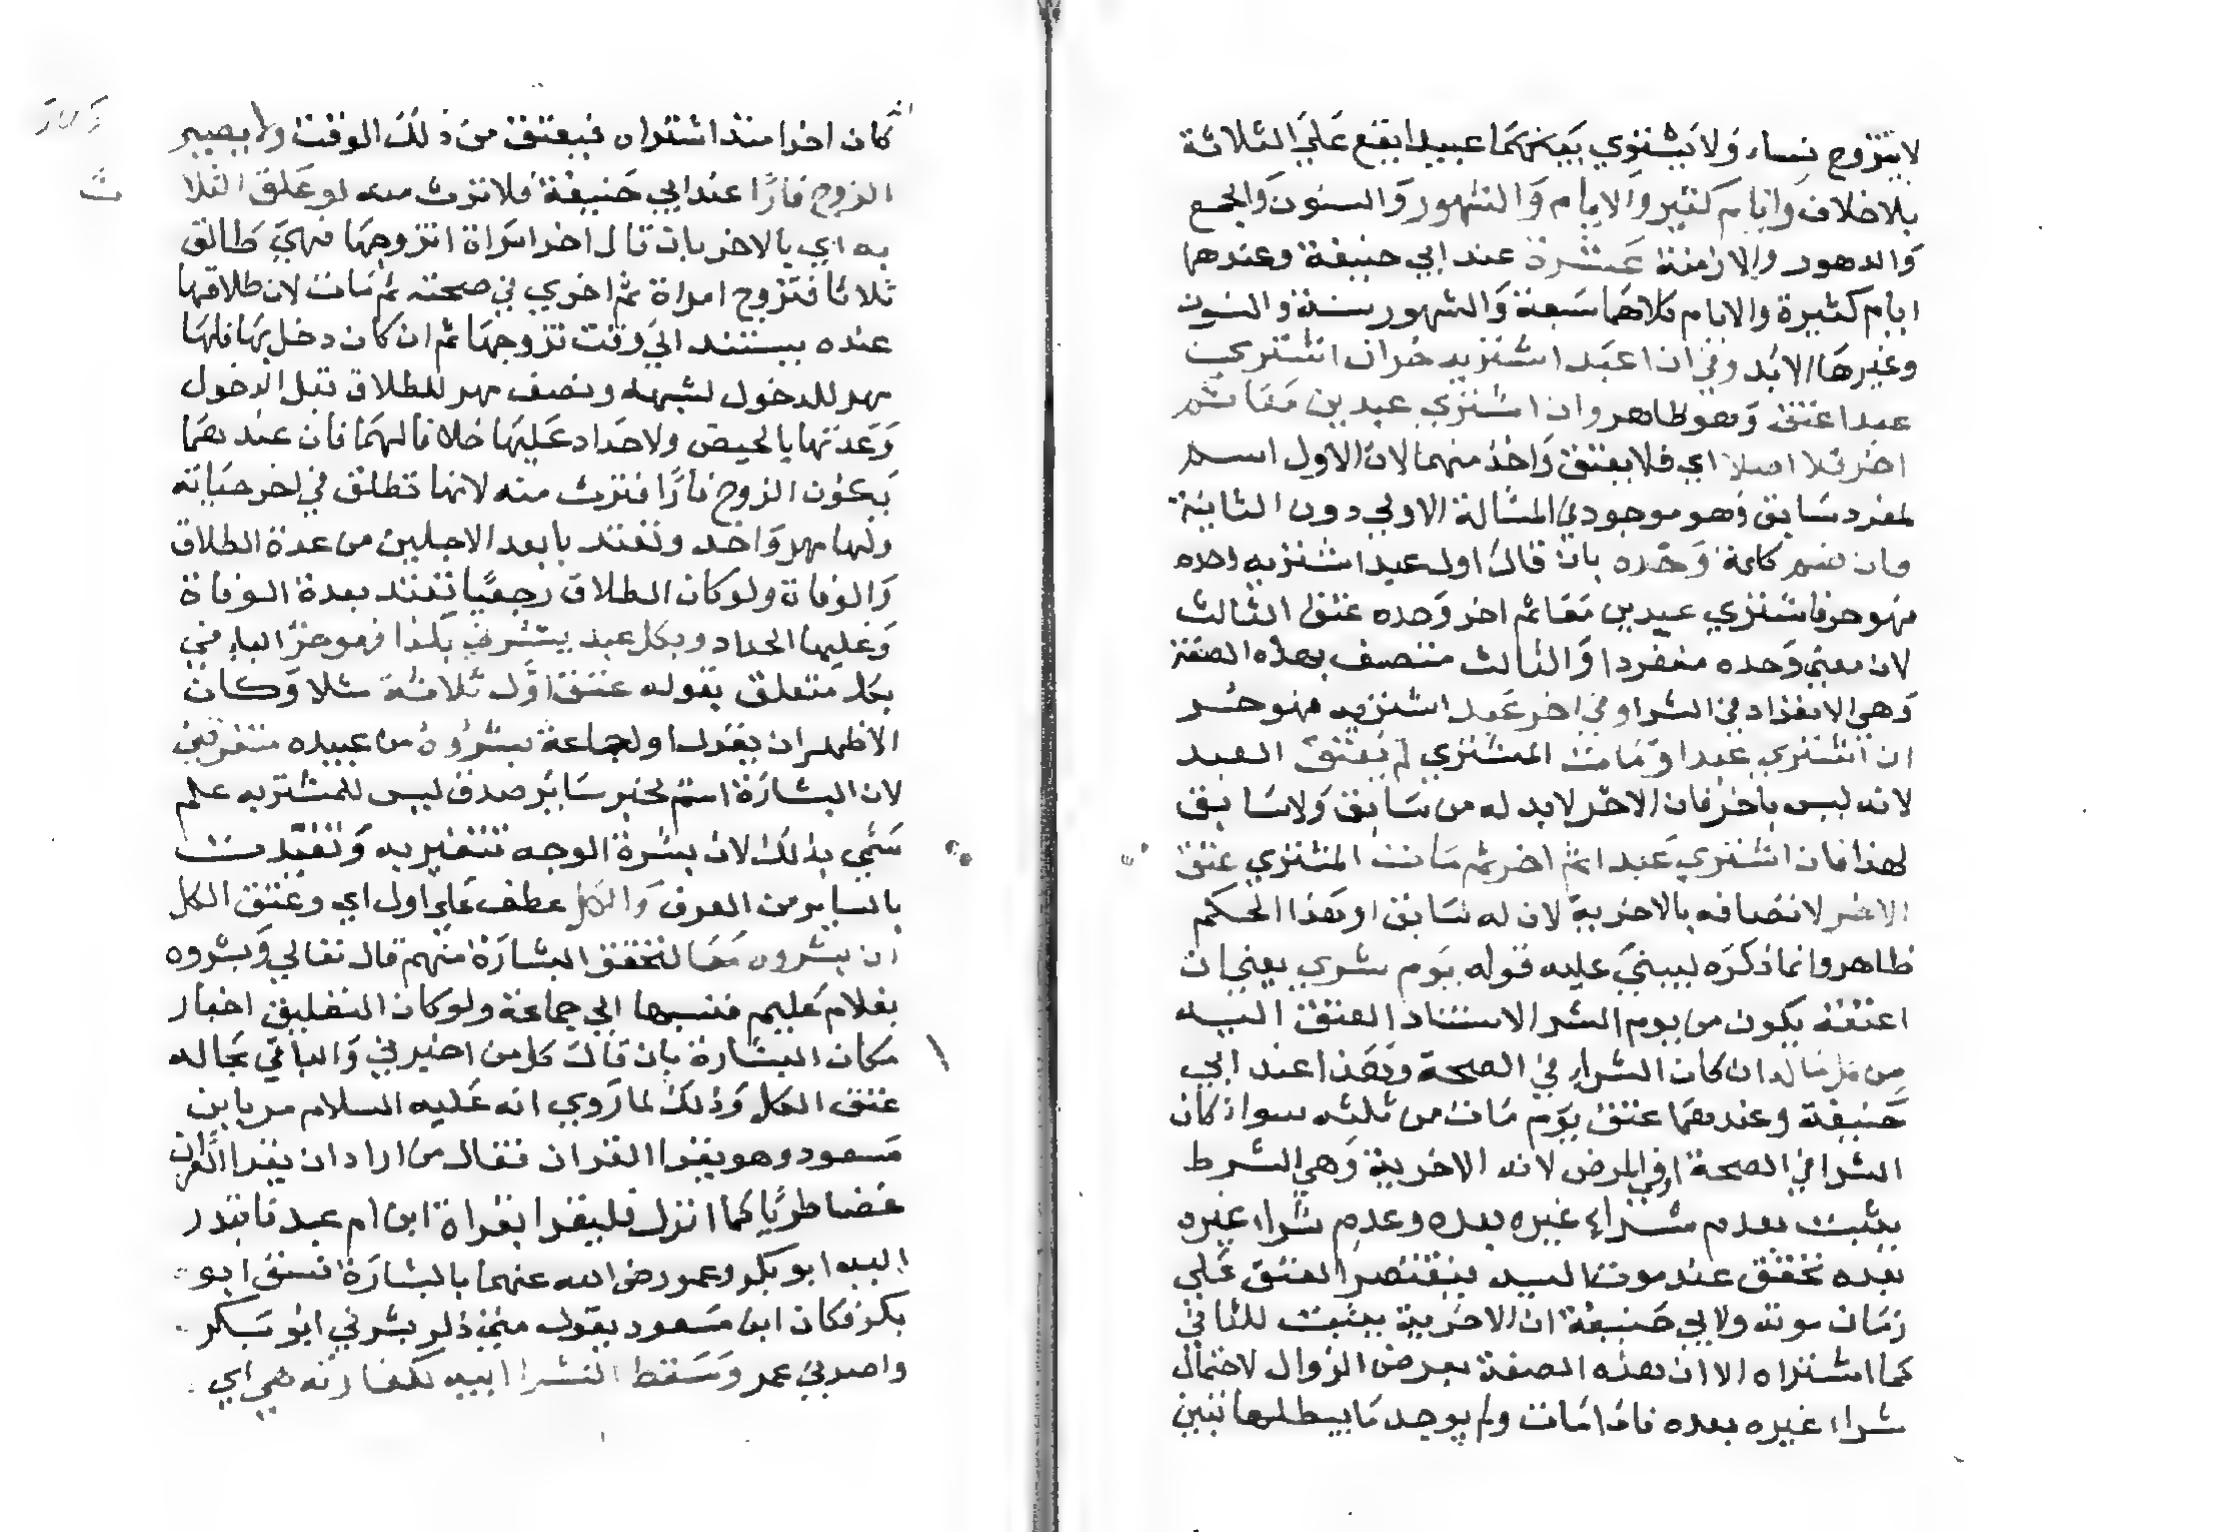 لا يتزوج نساء ولا يشتري بعينهما عبيدا يقع على الثلاثة
بلا خلاف وايام كثير والايام والشهور والسنون والجمع
والدهور والازمنة عشرة عند ابي حنيفة وعندهما
ايام كثيرة والايام كلاهما سبعة والشهور سنة والسنون
وغيرها الابد وفي ان اعبد اشتريه حران اشتري
عبدا عتق وهو ظاهر وان اشتري عبدين معا ثم
اخر فلا اصلا اي فلا يعتق واحد منهما لان الاول اسم
لمفرد سابق وهو موجود في المسالة الاولي دون الثانية
وان ضم كلمة وحده بان قال اول عبد اشتريه وحده
فهو حر فاشتري عبدين معا ثم اخر وحده عتق الثالث
لان معني وحده منفردا والثالث متصف بهذه الصفة
وهي الانفراد في الشرا وفي اخر عبد اشتريه فهو حر
ان اشتري عبدا ومات المشتري لم يعتق العبد
لانه ليس باخر فان الاخر لا بد له من سابق ولا سابق
لهذا فان اشتري عبدا ثم اخر ثم مات المشتري عتق
الاخر لاتصافه بالاخرية لان له سابق وهذا الحكم
ظاهر وانما ذكره ليبني عليه قوله يوم شري يعني ان
اعتقه يكون من يوم الشرا لاستناد العتق اليه
من كل ماله ان كان الشراء في الصحة وهذا عند ابي
حنيفة وعندهما عتق يوم مات من ثلثه سوا كان
الشرا في الصحة او في المرض لانه الاخرية وهي الشرط
يثبت بعدم شراء غيره بعده وعدم شراء غيره
بعده تحقق عند موت السيد فيقتصر العتق علي
زمان موته ولابي حنيفة ان الاخرية يثبت للثاني
كما اشتراه الا ان هذه الصفة بعرض الزوال لاحتمال
شراء غيره بعده فاذا مات ولم يوجد ما يبطلها تبين
كان اخرا منذ اشتراه فيعتق من ذلك الوقت ولا يصير
الزوج فارا عند ابي حنيفة فلا ترث منه لو علق الثلا
ث
به اي بالاخر بان قال اخر امراة اتزوجها فهي طالق
ثلاثا فتزوج امراة ثم اخري في صحته ثم مات لان طلاقها
عنده يستند الي وقت تزوجها ثم ان كان دخل بها فلها
مهر للدخول لشبهة ونصف مهر للطلاق قبل الدخول
وعدتها بالحيض ولا حداد عليها خلافا لهما فان عندهما
يكون الزوج فارا فترث منه لانها تطلق في اخر حياته
ولها مهر واحد وتعتد بابعد الاجلين من عدة الطلاق
والوفاة ولو كان الطلاق رجعيا تعتد بعدة الوفاة
وعليها الحداد وبكل عبد يشرني بكذا فهو حر الباء في
بكل متعلق بقوله عتق اول ثلاثة مثلا وكان
الاظهر ان يقول اول جماعة بشروه من عبيده متفرقين
لان البشارة اسم لخبر سابر صدق ليس للمشتر به علم
سمي بذلك لان بشرة الوجه تتغير به وتقيدت
بالسابر من العرف والكل عطف علي اول اي وعتق الكل
ان بشروه معا لتحقق البشارة منهم قال تعالي وبشروه
بغلام عليم فنسبها الي جماعة ولو كان التعليق اخبار
مكان البشارة بان قال كل من اخبرني والباقي بحاله
عتق الكل وذلك لما روي انه عليه السلام مر بابن
مسعود وهو يقرا القران فقال من اراد ان يقرا القران
غضا طريا كما انزل فليقرا بقراة ابن ام عبد فابتدر
اليه ابو بكر وعمر رضي الله عنهما بالبشارة فسبق ابو
بكر فكان ابن مسعود يقول متي ذكر بشرني ابو بكر
واخبرني عمر وسقط الشرا ابيه لكفارته هي اي